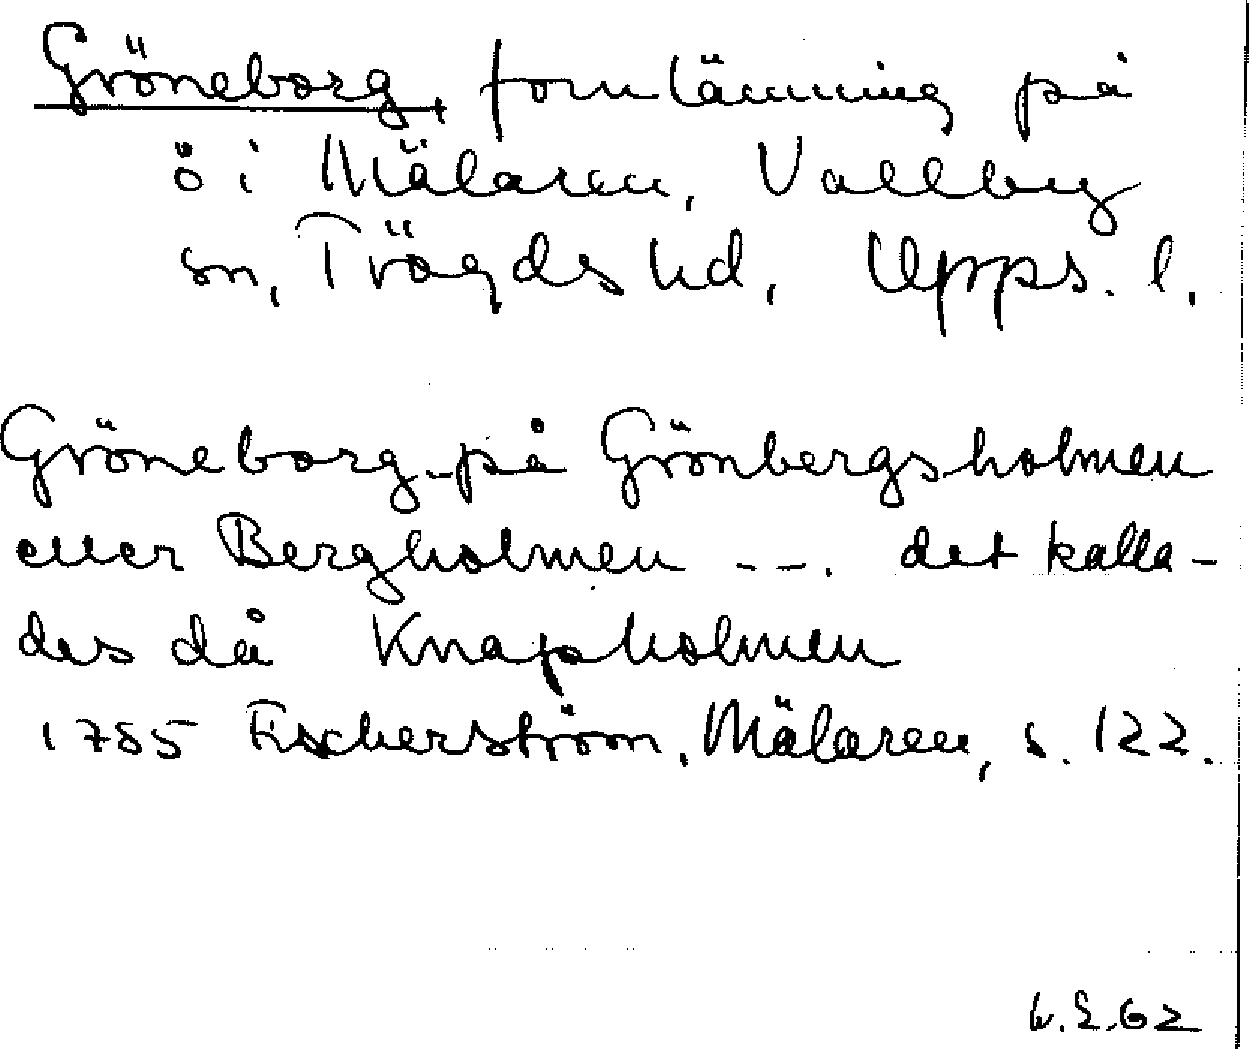 Gröneborg, fornlämning på
ö i Mälaren, Vallby
sn, Trögds hd, Upps. l.
Gröneborg på Grönbergsholmen
eller Bergholmen --. det kalla-
des då Knapholmen
1785 Fischerström, Mälaren, s. 122.
62